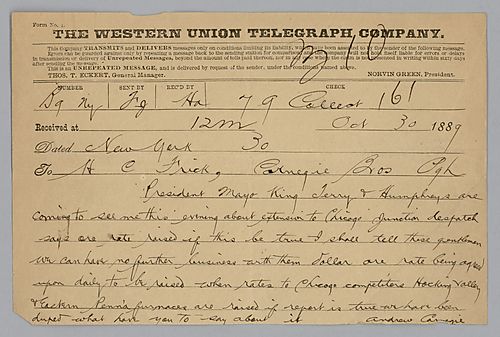 Form No. 1.
THE WESTERN UNION TELEGRAPH COMPANY.
This Company TRANSMITS and DELIVERS messages only on conditions limiting its liability, which have been assented to by the sender of the following message.
Errors can be guarded against only by repeating a message back to the sending station for comparison, and the Company will not hold itself liable for errors or delays
in transmission or delivery of Unrepeated Messages, beyond the amount of tolls paid thereon, nor in any case where the claim is not presented in writing within sixty days
after sending the message.
This is an UNREPEATED MESSAGE, and is delivered by request of the sender, under the conditions named above.
THOS. T. ECKERT, General Manager. NORVIN GREEN, President.
NUMBER SENT BY REC'D BY CHECK
Ny 79 Collect 161
Received at 12 m Oct 30 1889
Dated New York 30
To H C Frick, Carnegie Bros Pgh
President Mayo King Terry & Humphreys are
coming to see me this evening about extension to Chicago Junction despatch
says ore rate raised if this be true I shall tell these gentlemen
we can have no further business with them Dollar ore rate being agreed
upon daily to be raised when rates to Chicago competitors Hocking Valley
& Eastern Penna furnaces are raised if report is true we have been
duped what have you to say about it Andrew Carnegie